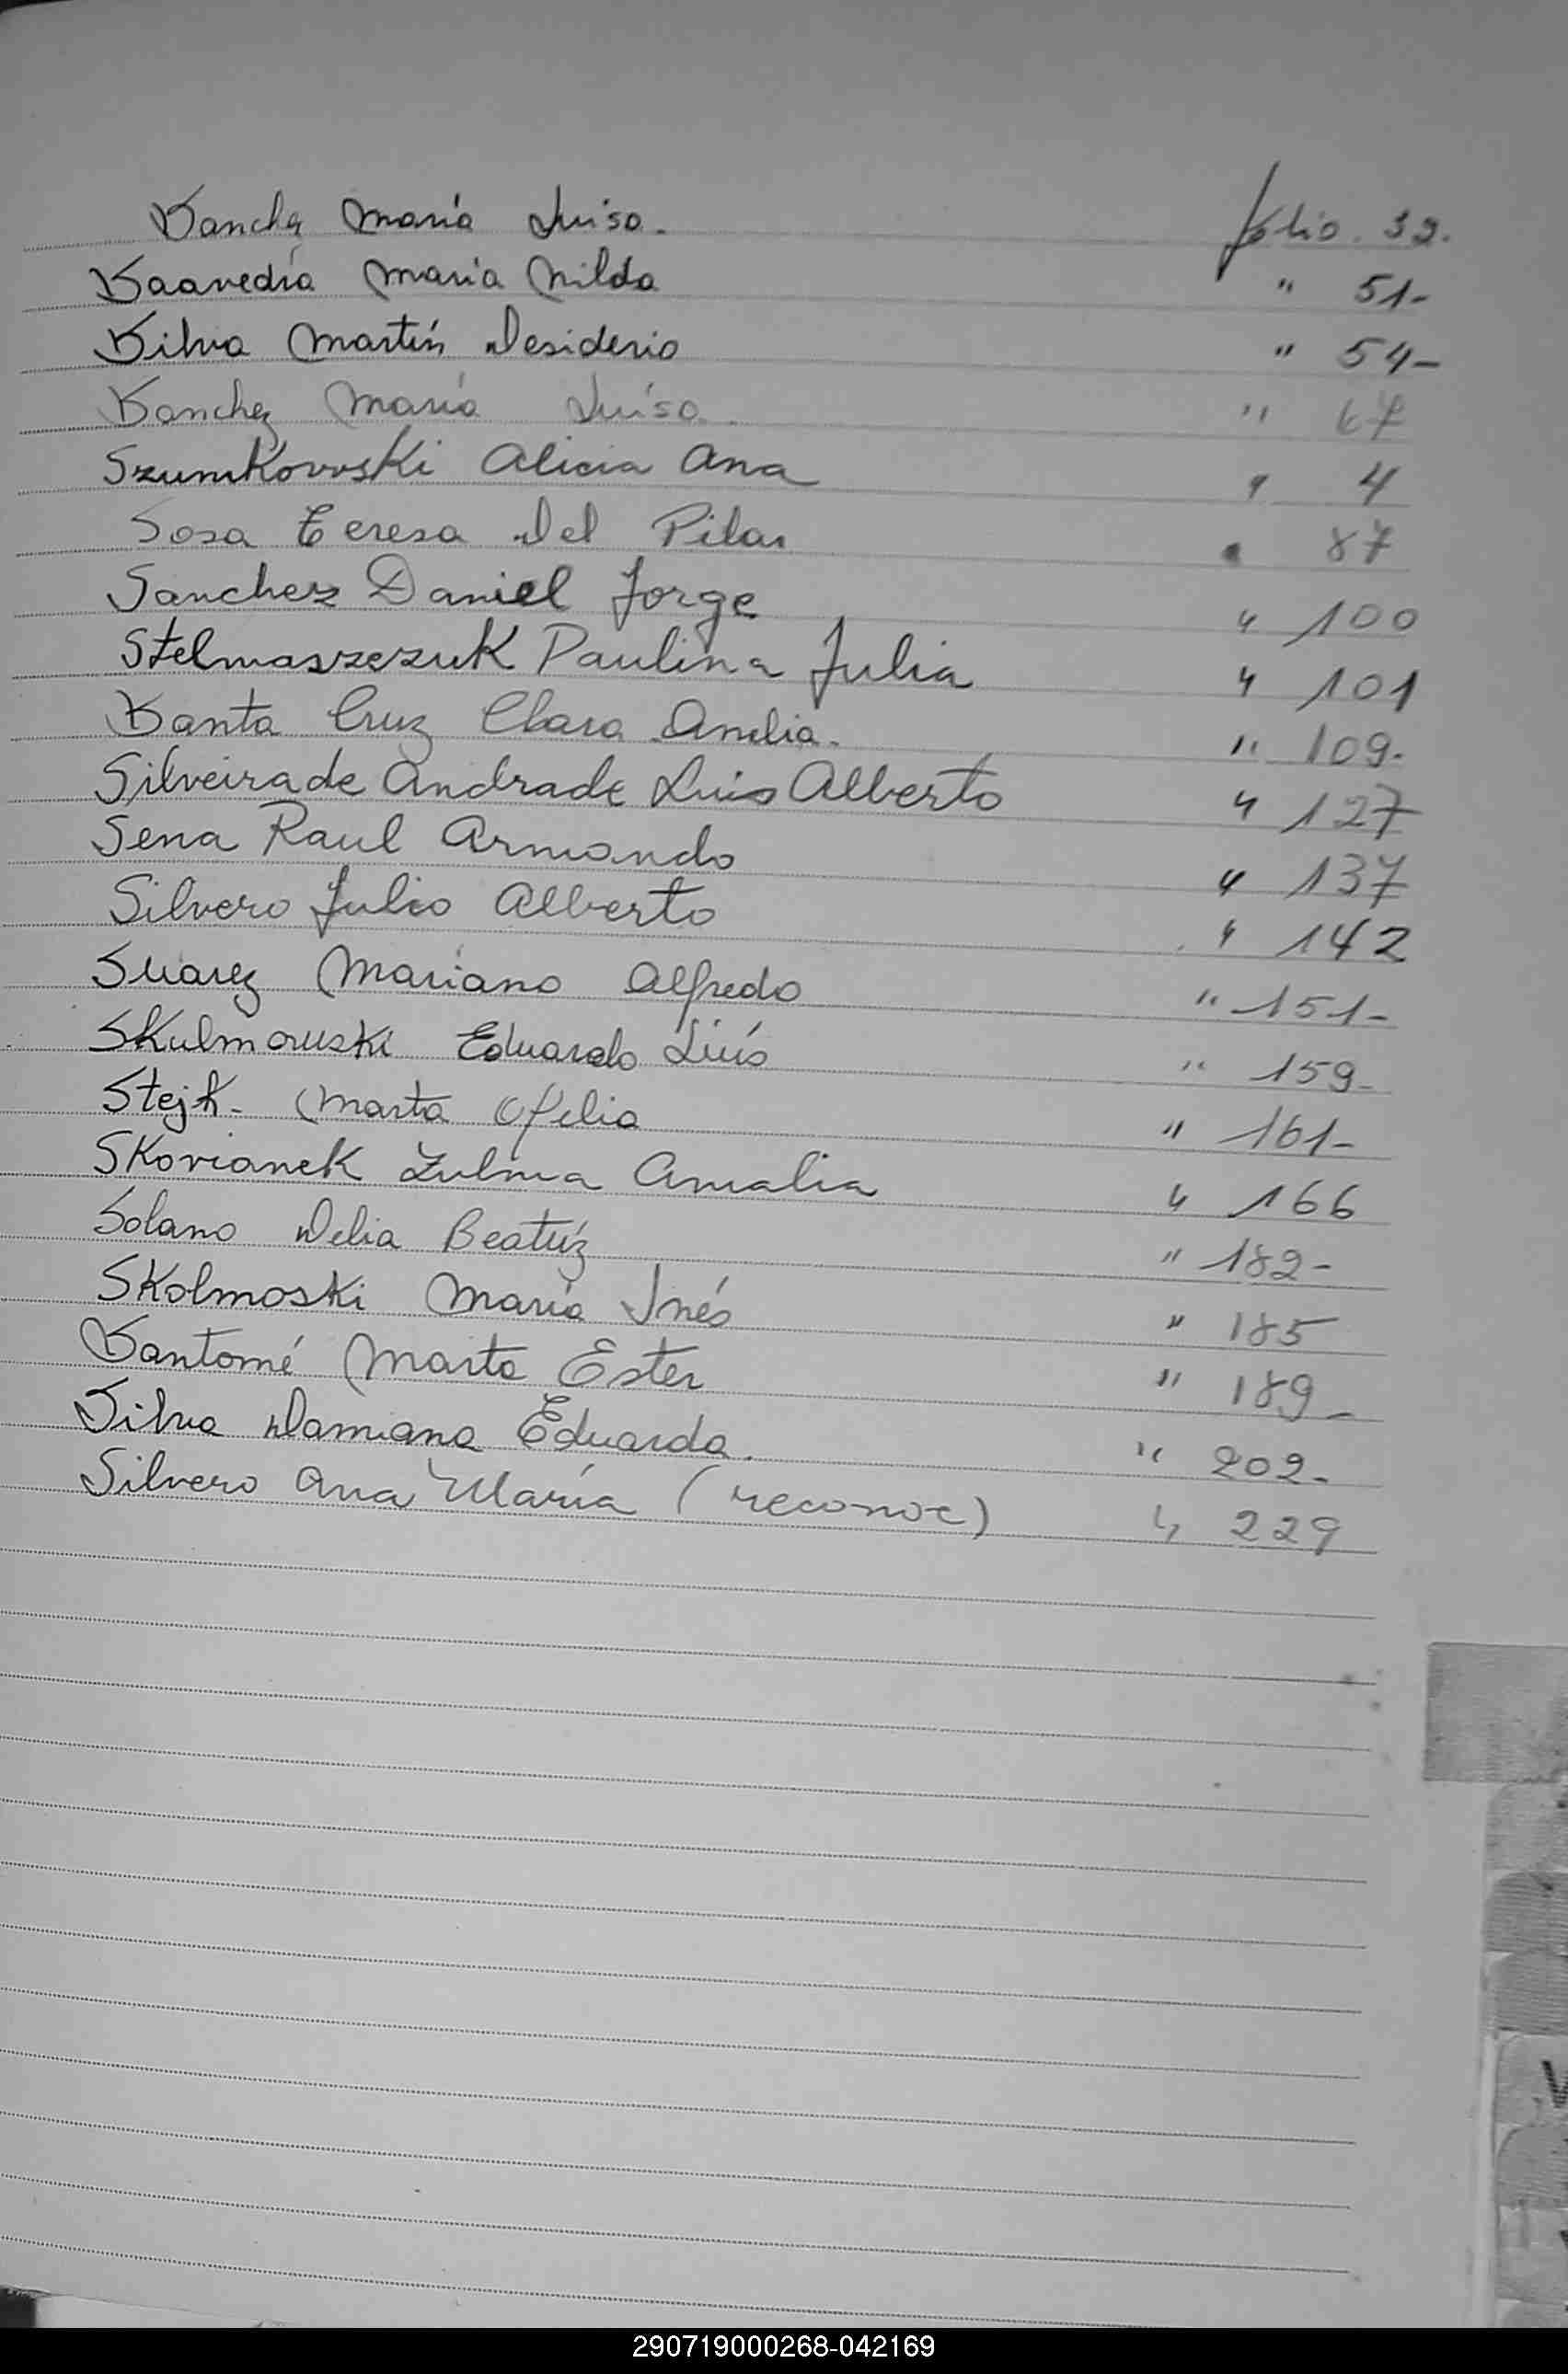 Sanchez María Luisa. folio. 39.
Saavedra Maria Nilda " 51-
Silva Martín Desiderio " 54-
Sanchez María Luisa. " 67
Szumkowski Alicia Ana " 4
Sosa Teresa Del Pilar " 87
Sanchez Daniel Jorge " 100
Stelmaszezuk Paulina Julia " 101
Santa Cruz Clara Amelia. " 109.
Silveira de Andrade Luis Alberto " 127
Sena Raul Armando " 137
Silvero Julio Alberto " 142
Suarez Mariano Alfredo " 151-
Skulmowski Eduardo Luís " 159-
Marta Ofelia " 161-
Skovianek Zulma Amalia " 166
Solano Delia Beatríz " 182-
Skolmoski María Inés " 185
Santomé Marta Ester " 189-
Silva Damiana Eduarda. " 202-
Silvero Ana María (reconoc) " 229
V
290719000268-042169